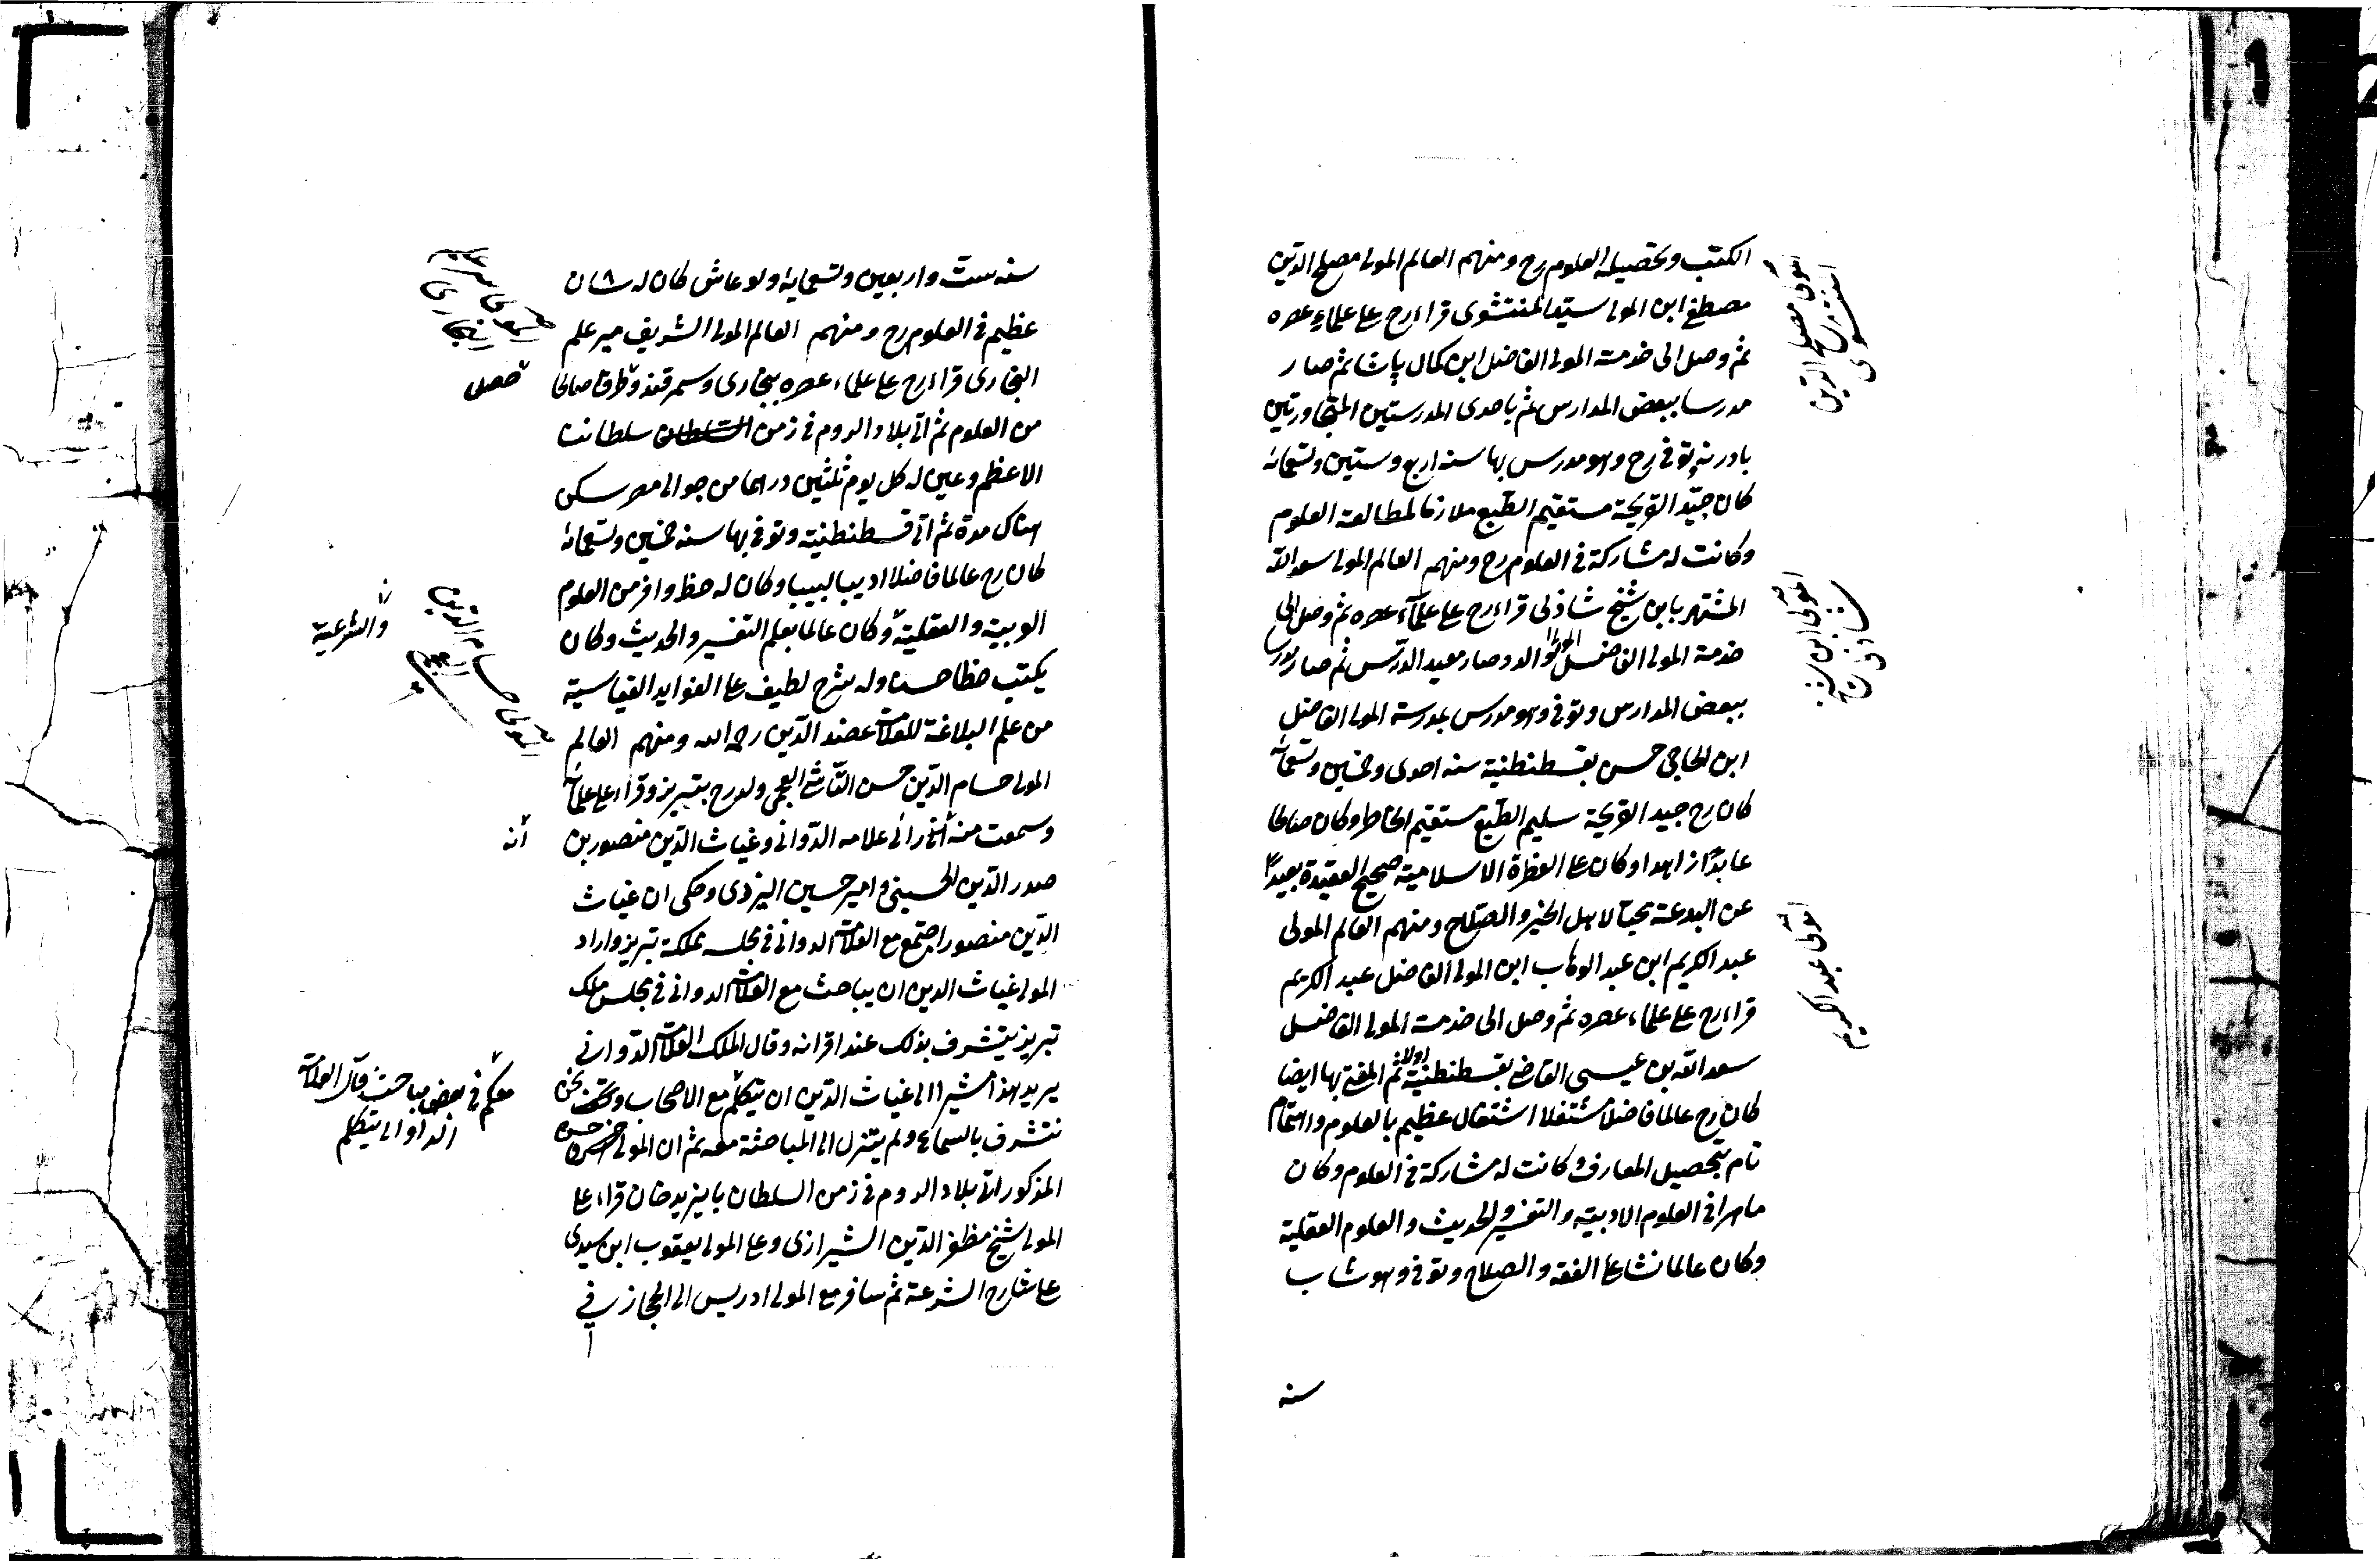 الكتب وتحصيله العلوم رح ومنهم العالم المولى مصلح الدين
مصطفى ابن المولى سيد المنتشوى قراء رح على علماء عصره
ثم وصل الى خدمة المولى الفاضل ابن كمال پاشا ثم صار
مدرسا ببعض المدارس ثم باحدى المدرستين المتجاورتين
بادرنه توفى رح وهو مدرس بها سنه اربع وستين وتسعمائه
كان جيّد القريحة مستقيم الطبع ملازما لمطالعة العلوم
وكانت له مشاركة فى العلوم رح ومنهم العالم المولى سعد الله
المشتهر بابن شيخ شاذلى قراء رح على علماء عصره ثم وصل الى
خدمة المولى الفاضل الوالد وصار معيد الدرس ثم صار مدرسا
ببعض المدارس وتوفى وهو مدرس بمدرسة المولى الفاضل
ابن الحاجى حسن بقسطنطنية سنه احدى وخمسين وتسعمائه
كان رح جيد القريحة سليم الطبع مستقيم الخاطر وكان صالحا
عابدًا زاهدا وكان على الفطرة الاسلامية صحيح العقيدة بعيدًا
عن البدعة محبا لاهل الخير والصلاح ومنهم العالم المولى
عبد الكريم ابن عبد الوهاب ابن المولى الفاضل عبد الكريم
قراء رح على علماء عصره ثم وصل الى خدمة المولى الفاضل
سعد الله بن عيسى القاضى بقسطنطنية اولا ثم المفتى بها ايضا
كان رح عالما فاضلا مشتغلا اشتغال عظيم بالعلوم واهتمام
تام بتحصيل المعارف وكانت له مشاركة فى العلوم وكان
ماهرا فى العلوم الادبية والتفسير والحديث والعلوم العقلية
وكان عالما نشا على الفقه والصلاح وتوفى وهو شاب
سنه
المولى مصلح الدين
المنتشوى
المولى ابن شيخ
شاذلى
المولى عبد الكريم
سنه ست واربعين وتسعمايه ولو عاش كان له شان
عظيم فى العلوم رح ومنهم العالم المولى الشريف مير علم
البخارى قراء رح على علماء عصره ببخارى وسمرقند وطرفا صالحا
من العلوم ثم اتى بلاد الروم فى زمن السلطان سلطاننا
الاعظم وعين له كل يوم ثلثين درهما من جوالى مصر سكن
هناك مدة ثم اتى قسطنطنية وتوفى بها سنه خمسين وتسعمائه
كان رح عالما فاضلا اديبا لبيبا وكان له حظ وافر من العلوم
الوبية والعقلية وكان عالما بعلم التفسير والحديث وكان
يكتب خطا حسنا وله شرح لطيف على الفوايد الغياسية
من علم البلاغة للعلامة عضد الدين رحمه الله ومنهم العالم
المولى حسام الدين حسن النقاش العجمى ولد رح بتبريز وقراء على علمائه
وسمعت منه انه راى علامه الدوانى وغياث الدين منصور بن
صدر الدين الحسينى وامير حسين اليزدى وحكى ان غياث
الدين منصور اجتمع مع العلامة الدوانى فى مجلس مملكة تبريز واراد
المولى غياث الدين ان يباحث مع العلامة الدوانى فى مجلس ملك
تبريز يتشرف بذلك عند اقرانه وقال الملك العلامة الدوانى
يريد هذا مشيرا الى غياث الدين ان يتكلم مع الاصحاب ونحن نحن
نتشرف بالسماع ولم يتنزل الى المباحثة معه ثم ان المولى حسن
المذكور اتى بلاد الروم فى زمن السلطان بايزيد خان قراء على
المولى شيخ مظفر الدين الشيرازى وعلى المولى يعقوب ابن سيدى
على شارح الشرعة ثم سافر مع المولى ادريس الى الحجاز فى
البخارى
حصل
المولى حسام الدين
العجمى
والشرعية
انه
معكم فى بعض مباحث قال العلامة
الدوانى يتكلم